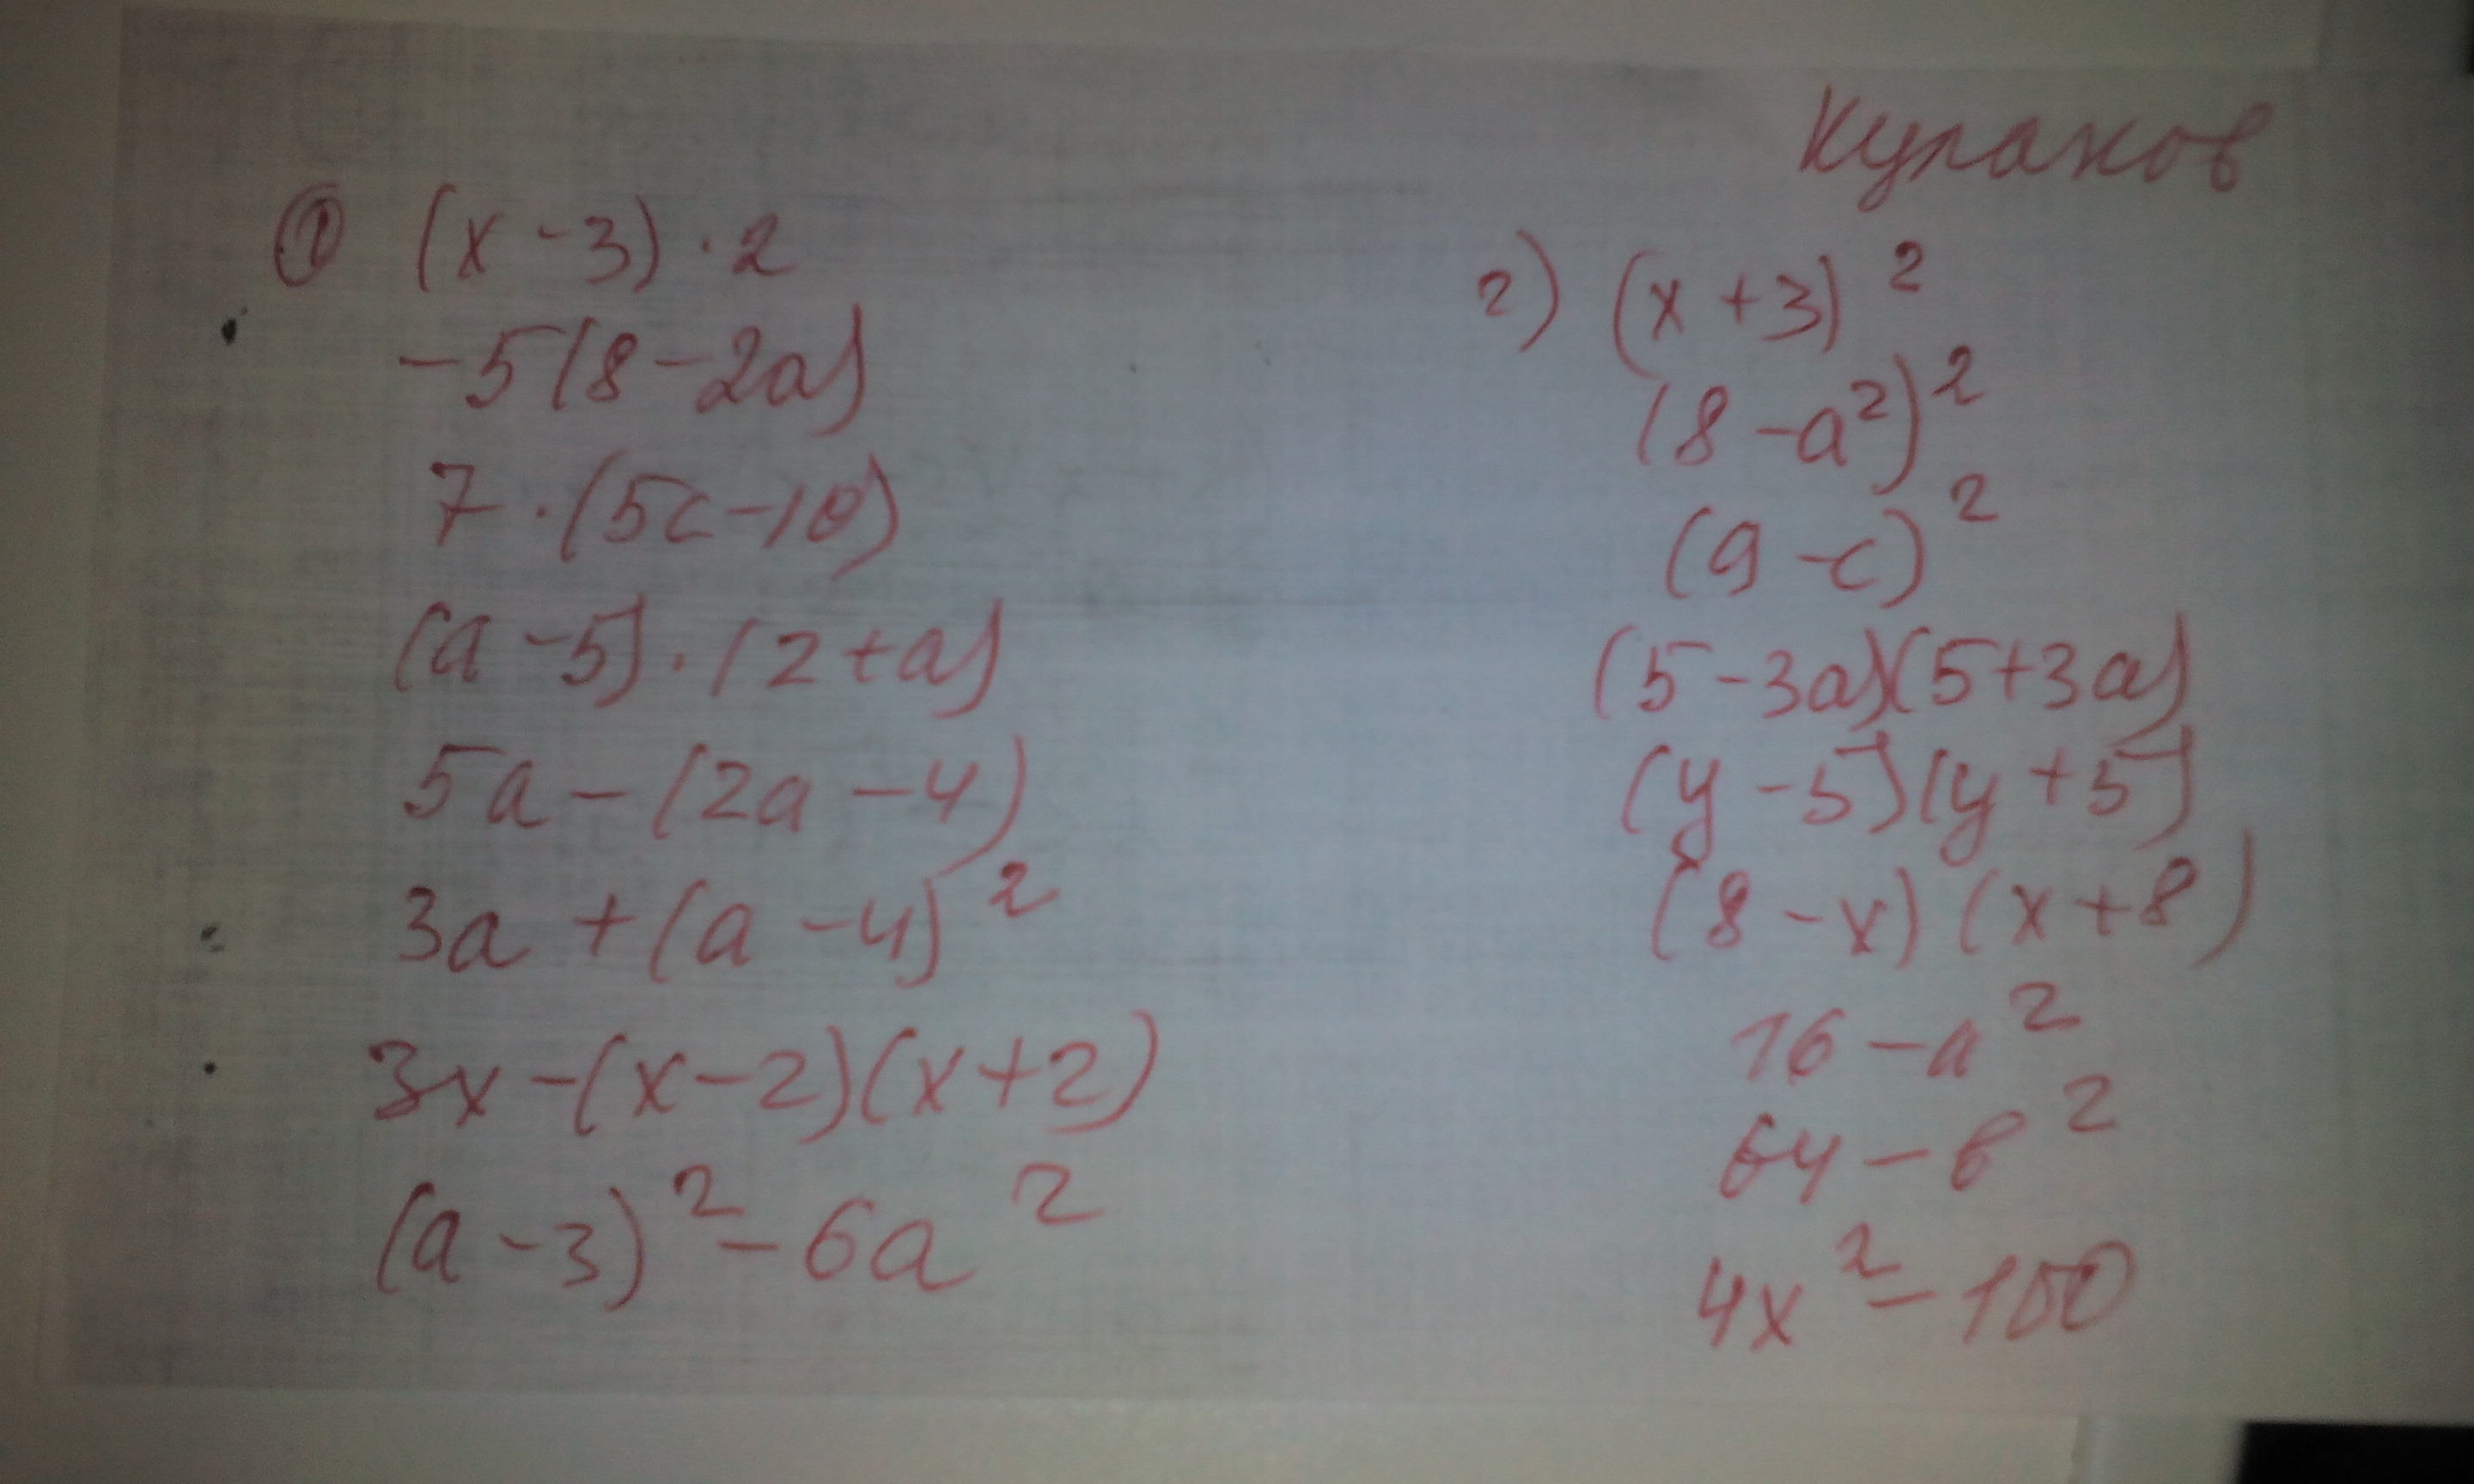 Кулаков
① (x - 3) · 2
-5(8 - 2a)
7 · (5c - 10)
(a - 5) · (2 + a)
5a - (2a - 4)
3a + (a - 4)²
3x - (x - 2)(x + 2)
(a - 3)² - 6a²
2) (x + 3)²
(8 - a²)²
(9 - c)²
(5 - 3a)(5 + 3a)
(y - 5)(y + 5)
(8 - x)(x + 8)
16 - a²
64 - в²
4x² - 100